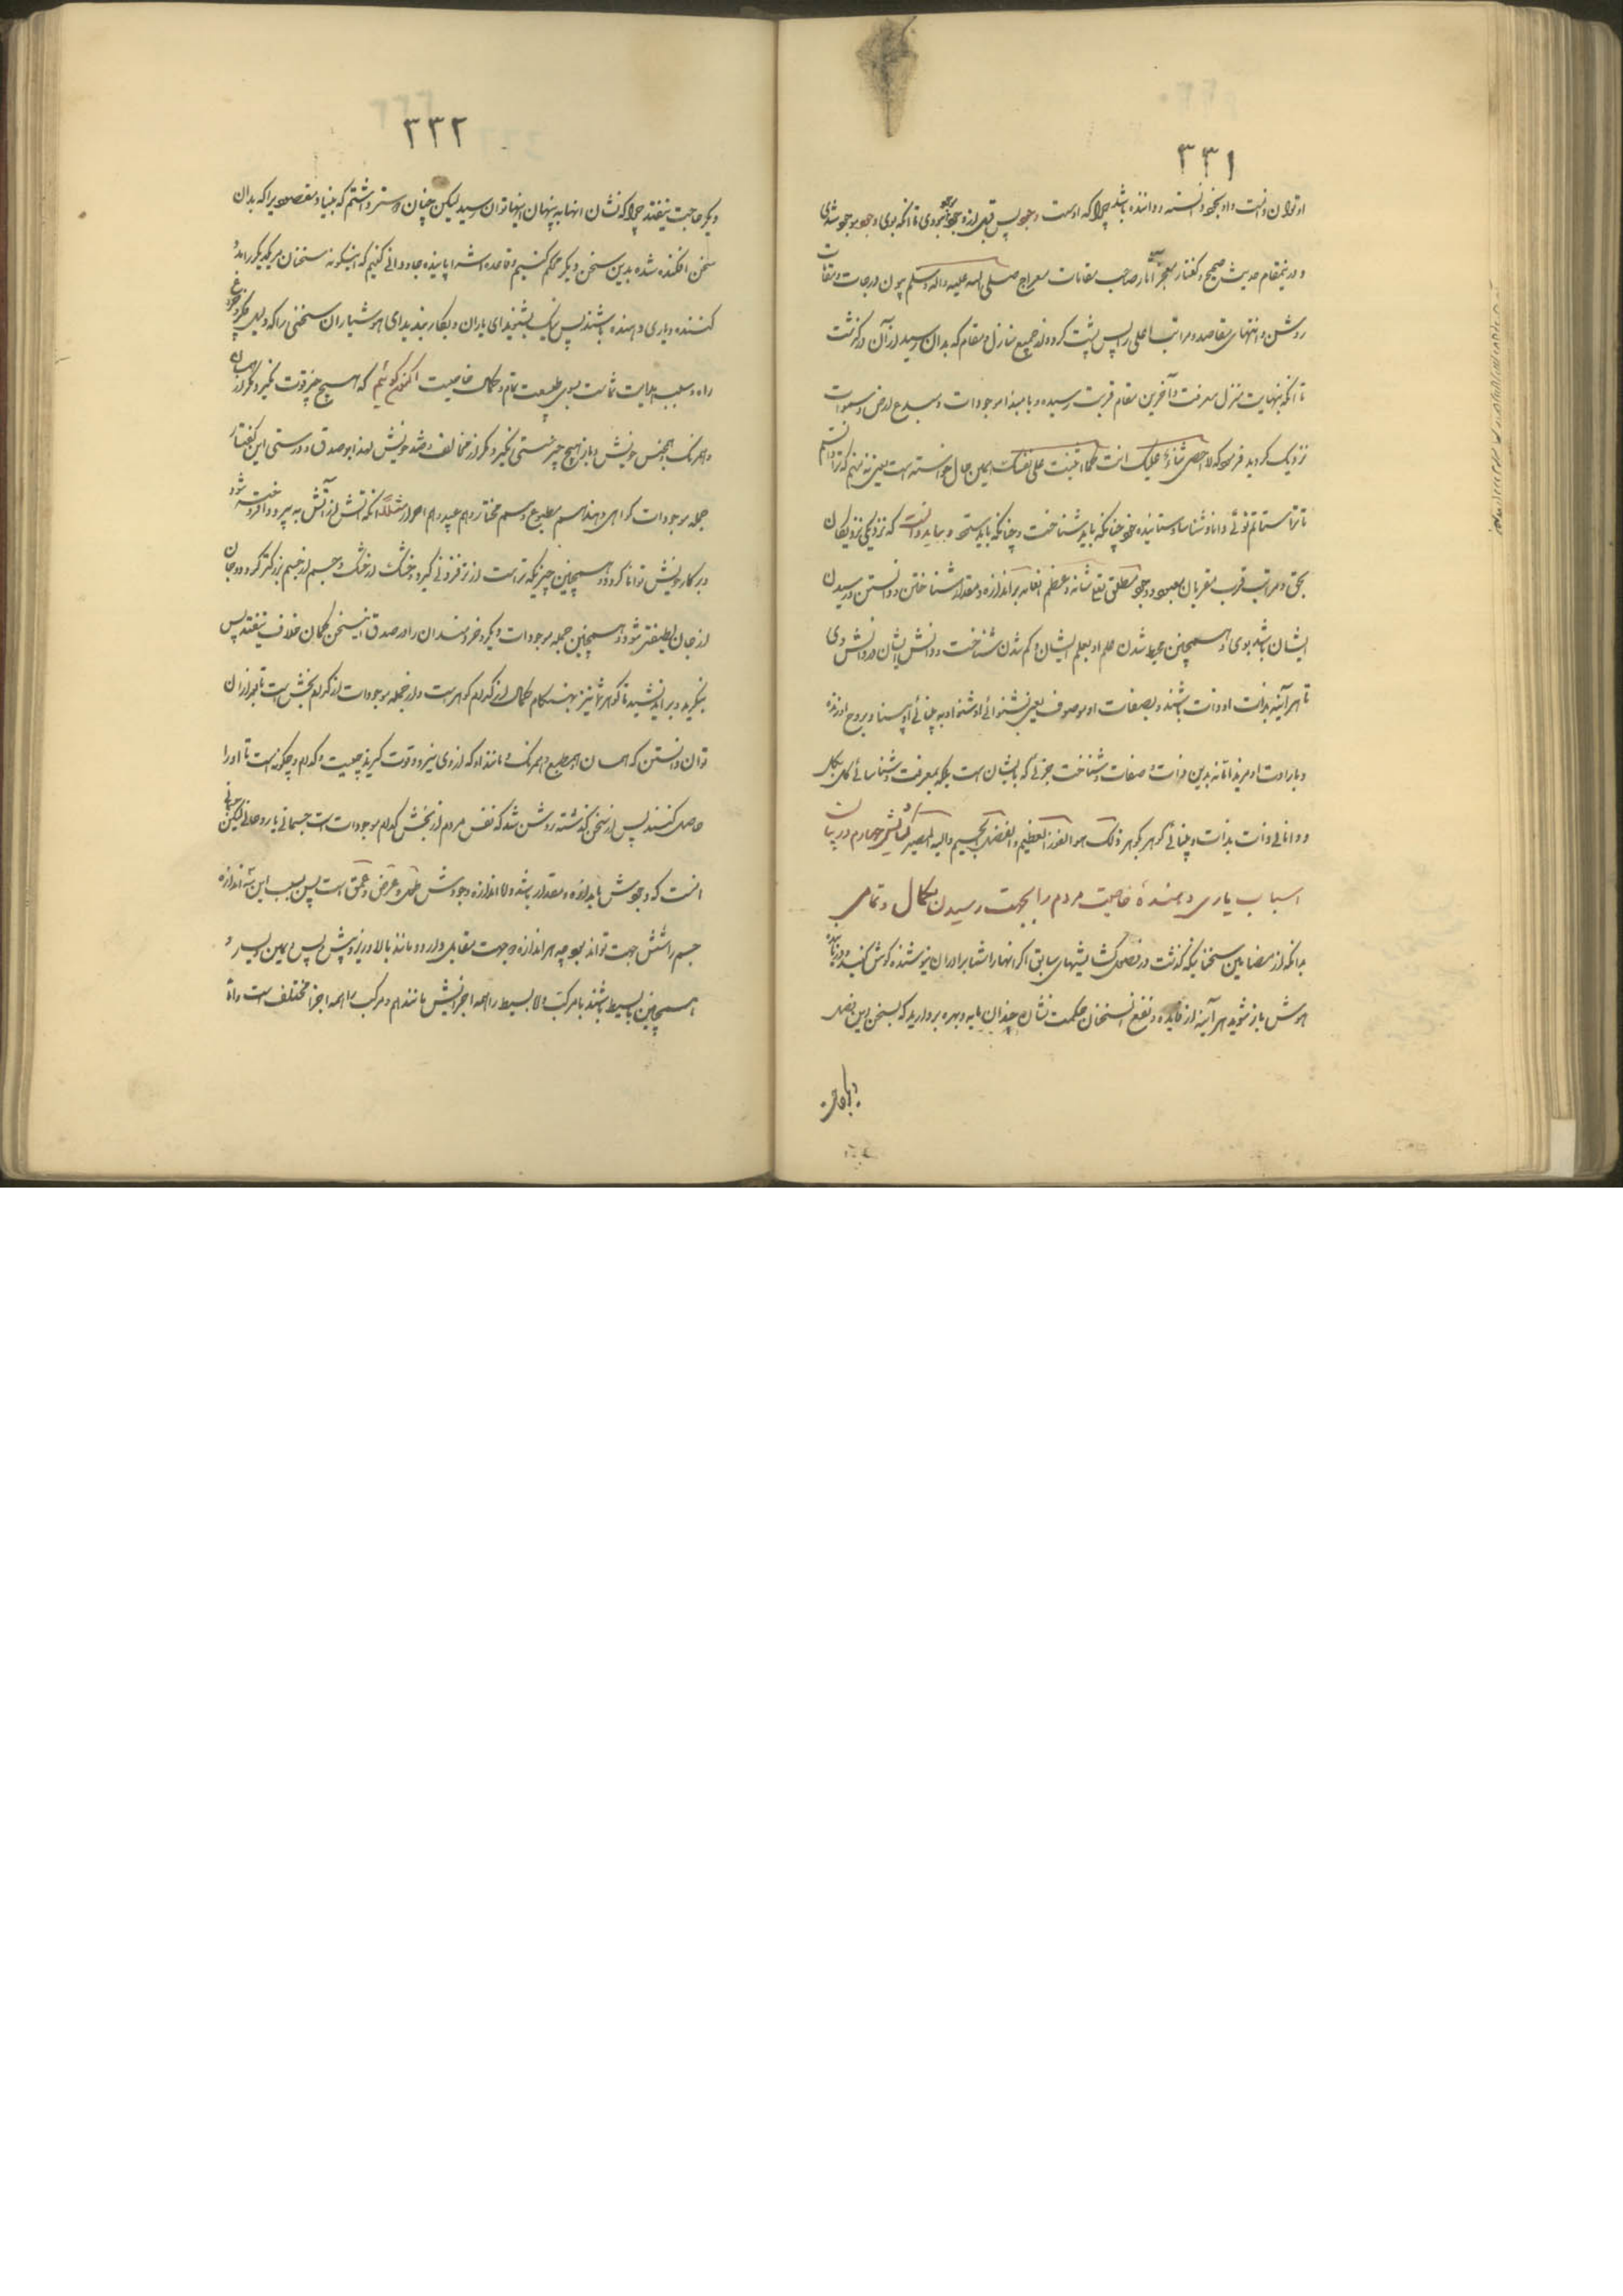 ۳۳۱
او توان دانست و او بخود دانسته و داننده باشد چرا که اوست وجود پس قبل از وجود نبودی تا آنکه بوی وجود موجود شدی
و درینمقام حدیث صحیح و گفتار معجز آثار صاحب مقامات معراج صلی الله علیه و اله وسلم چون درجات و مقامات
روشن و انتهای مقاصد و مراتب اعلی را پس پشت کرده و از جمیع منازل و مقام که بدان رسید از آن درگذشت
تا آنکه بنهایت منزل معرفت و آخرین مقام قربت رسیده و با مبداء موجودات و مبدع ارض و سموات
نزدیک گردید فرمود که لا احصی ثناء علیک انت کما اثنیت علی نفسک همین حال خواسته است یعنی نه منم که ترا دانم
تا ترا ستایم توئی دانا و شناسا و ستاینده خود چنانکه باید شناخت و چنانکه باید ستود و بباید دانست که نزدیکی نزدیکان
بحق و مراتب قرب مقربان بمعبود وجود مطلق تعا شانه و عظم انعامه بر اندازه و مقدار شناختن و دانستن و رسیدن
ایشان باشد بوی و همچنین محیط شدن علم او بعلم ایشان و گم شدن شناخت و دانش ایشان در دانش وی
تا هر آینه بذات او ذات باشند و بصفات او موصوف یعنی بشنوائی او شنوا و به بینائی او بینا و بروح او زنده
و بارادت او مرید امّا نه بدین ذات و صفات و شناخت جزئی که بایشان است بلکه بمعرفت و شناسائی کلی بکل
و دانائی ذات بذات و بینائی گوهر بگوهر ذلک هو الفوز العظیم و الفضل الجسیم و الیه المصیر گشایش چهارم در بیان
اسباب یاری دهندهٔ خاصیت مردم را بجهت رسیدن بکمال و تمامی
بدانکه از مضامین سخنانیکه گذشت در فصل گشایشهای سابق اگر انها را شما برادران نیوشنده گوش کنید و در باره
هوش باز شوید هر آینه از فایده و نفع انسخنان حکمت نشان چندان مایه و بهره بردارید که بسخن این فصل
۳۳۲
دیگر حاجت نیفتد چرا که نشان انها به پنهان اینها توان رسید لیکن چنان دوستر داشتم که بنیاد مقصودیرا که بدان
سخن افکنده شده بدین سخن دیگر محکم کنیم و قاعده اش را پاینده جاودانی کنیم که اینگونه سخنان مر یکدیگر را مدد
کننده و یاری دهنده باشند پس نیک بشنوید ای یاران و بکار بندید ای هوشیاران سخنی را که دلیل
راه و سبب هدایت شماست بسوی طبیعت تمام و کمال خاصیت اکنون گوئیم که هیچ چیز قوت نگیرد مگر از همسان
و همرنگ و همجنس خویش و باز هیچ چیز سستی نگیرد مگر از مخالف و ضد خویش لهذا بر صدق و درستی این گفتار
جمله موجودات گواهی دهند هم مطبوع و هم مختار و هم عبید و هم احرار مثلا انکه آتش از آتش به نیرو و افروخته شود
در کار خویش توانا گردد و همچنین چیزیکه تراست از تر فزونی گیرد و خشک از خشک و جسم از جسم بزرگتر گردد و جان
از جان لطیفتر شود و همچنین جمله موجودات دیگر و خردمندان را در صدق اینسخن گمان خلاف نیفتد پس
بنگرید و براندیشید تا گوهر شما نیز بهنگام کمال از کدام گوهر است و از جمله موجودات از کدام بخش است تا بعد از ان
توان دانستن که همسان و همطبع و همرنگ و مانند او که از وی نیرو و قوت گیرد چیست و کدام و چگونه است تا او را
حاصل کنند پس از سخن گذشته روشن شد که نفس مردم از بخش کدام موجودات است جسمانی یا روحانی لیکن جسمانی
انست که وجودش با اندازه و مقدار باشد و لا اندازه وجودش طول و عرض و عمق است پس بسبب این سه اندازه
جسم را شش جهت تواند بود چه هر اندازه دو جهت مقابل دارد مانند بالا و زیر و پیش و پس و یمین و یسار و
همچنین یا بسیط باشند یا مرکب و لا بسیط را همه اجزایش مانند هم و مرکب را همه اجزا مختلف است و اما